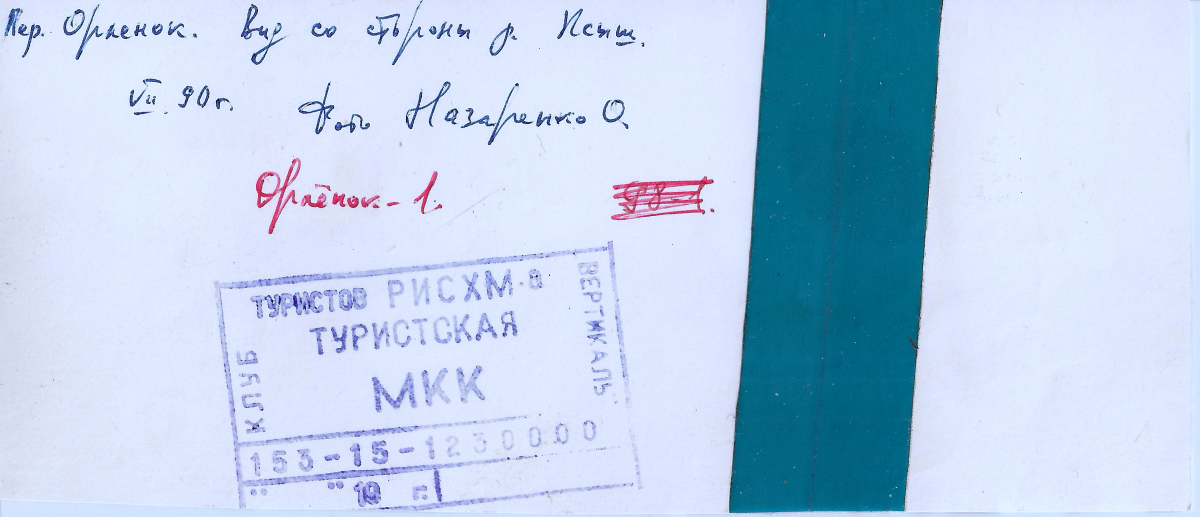 Пер. Орленок. Вид со стороны р. Псыш.
VII. 90 г.
Фото Назаренко О.
Орлёнок-1.
ТУРИСТОВ РИСХМ-а
ТУРИСТСКАЯ
МКК
КЛУБ
ВЕРТИКАЛЬ"
153-15-1230000
" " 19 г.